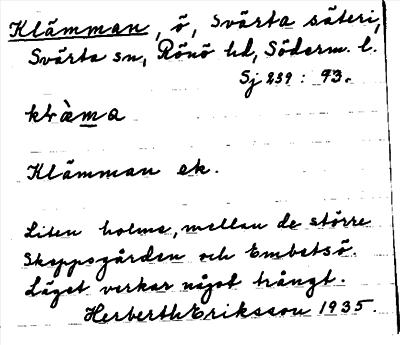 Klämman, ö, Svärta säteri,
Svärta sn, Rönö hd, Söderm. l.
Sj 239: 93.
klä̀ma
Klämman ek.
Liten holme, mellan de större
Skeppsgården och Embetsö.
Läget verkar något trångt.
Herberth Eriksson 1935.